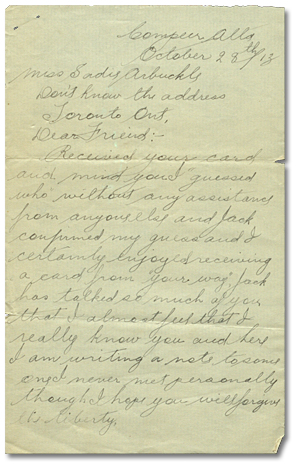 Compeer Alta
October 28th/13
Miss Sadie Arbuckle
Don't know the address
Toronto Ont,
Dear Friend:-
Received your card
and mind you "guessed
who" without any assistance
from anyone else and Jack
confirmed my guess and I
certainly enjoyed receiving
a card from "your way" Jack
has talked so much of you
that I almost feel that I
really know you and here
I am writing a note to some
one I never met personally
though I hope you will forgive
the liberty,